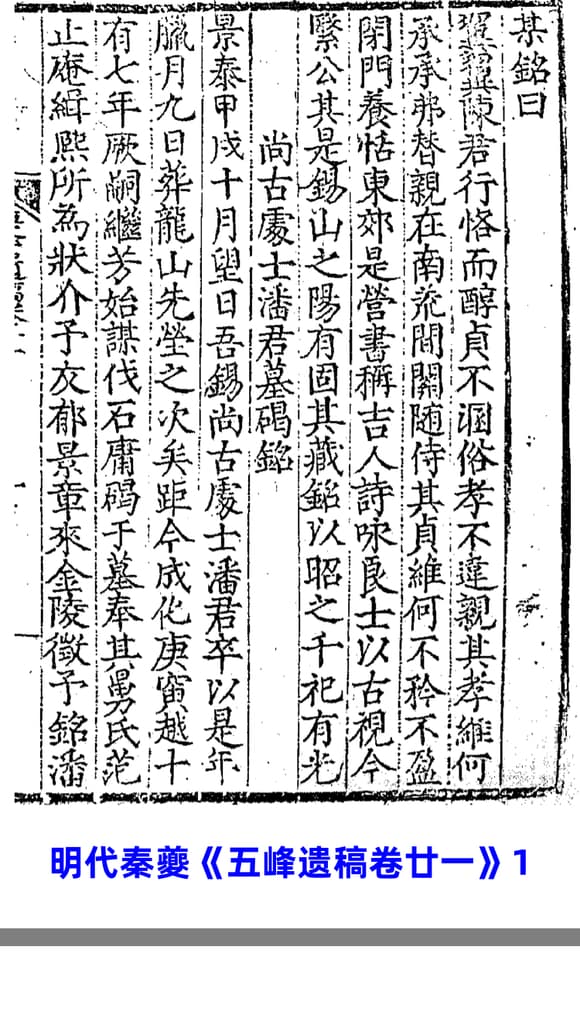 某銘曰
陳君行恪而醇貞不溷俗孝不違親其孝維何
承承弗替親在南荒間關随侍其貞維何不矜不盈
閉門養恬東郊是營書稱吉人詩咏良士以古視今
繄公其是錫山之陽有固其藏銘以昭之千祀有光
尚古處士潘君墓碣銘
景泰甲戌十月望日吾錫尚古處士潘君卒以是年
臘月九日葬龍山先塋之次矣距今成化庚寅越十
有七年厥嗣繼芳始謀伐石庸碣于墓奉其舅氏范
止庵緝熙所為狀介予友郁景章來金陵徵予銘潘
明代秦夔《五峰遗稿卷廿一》1